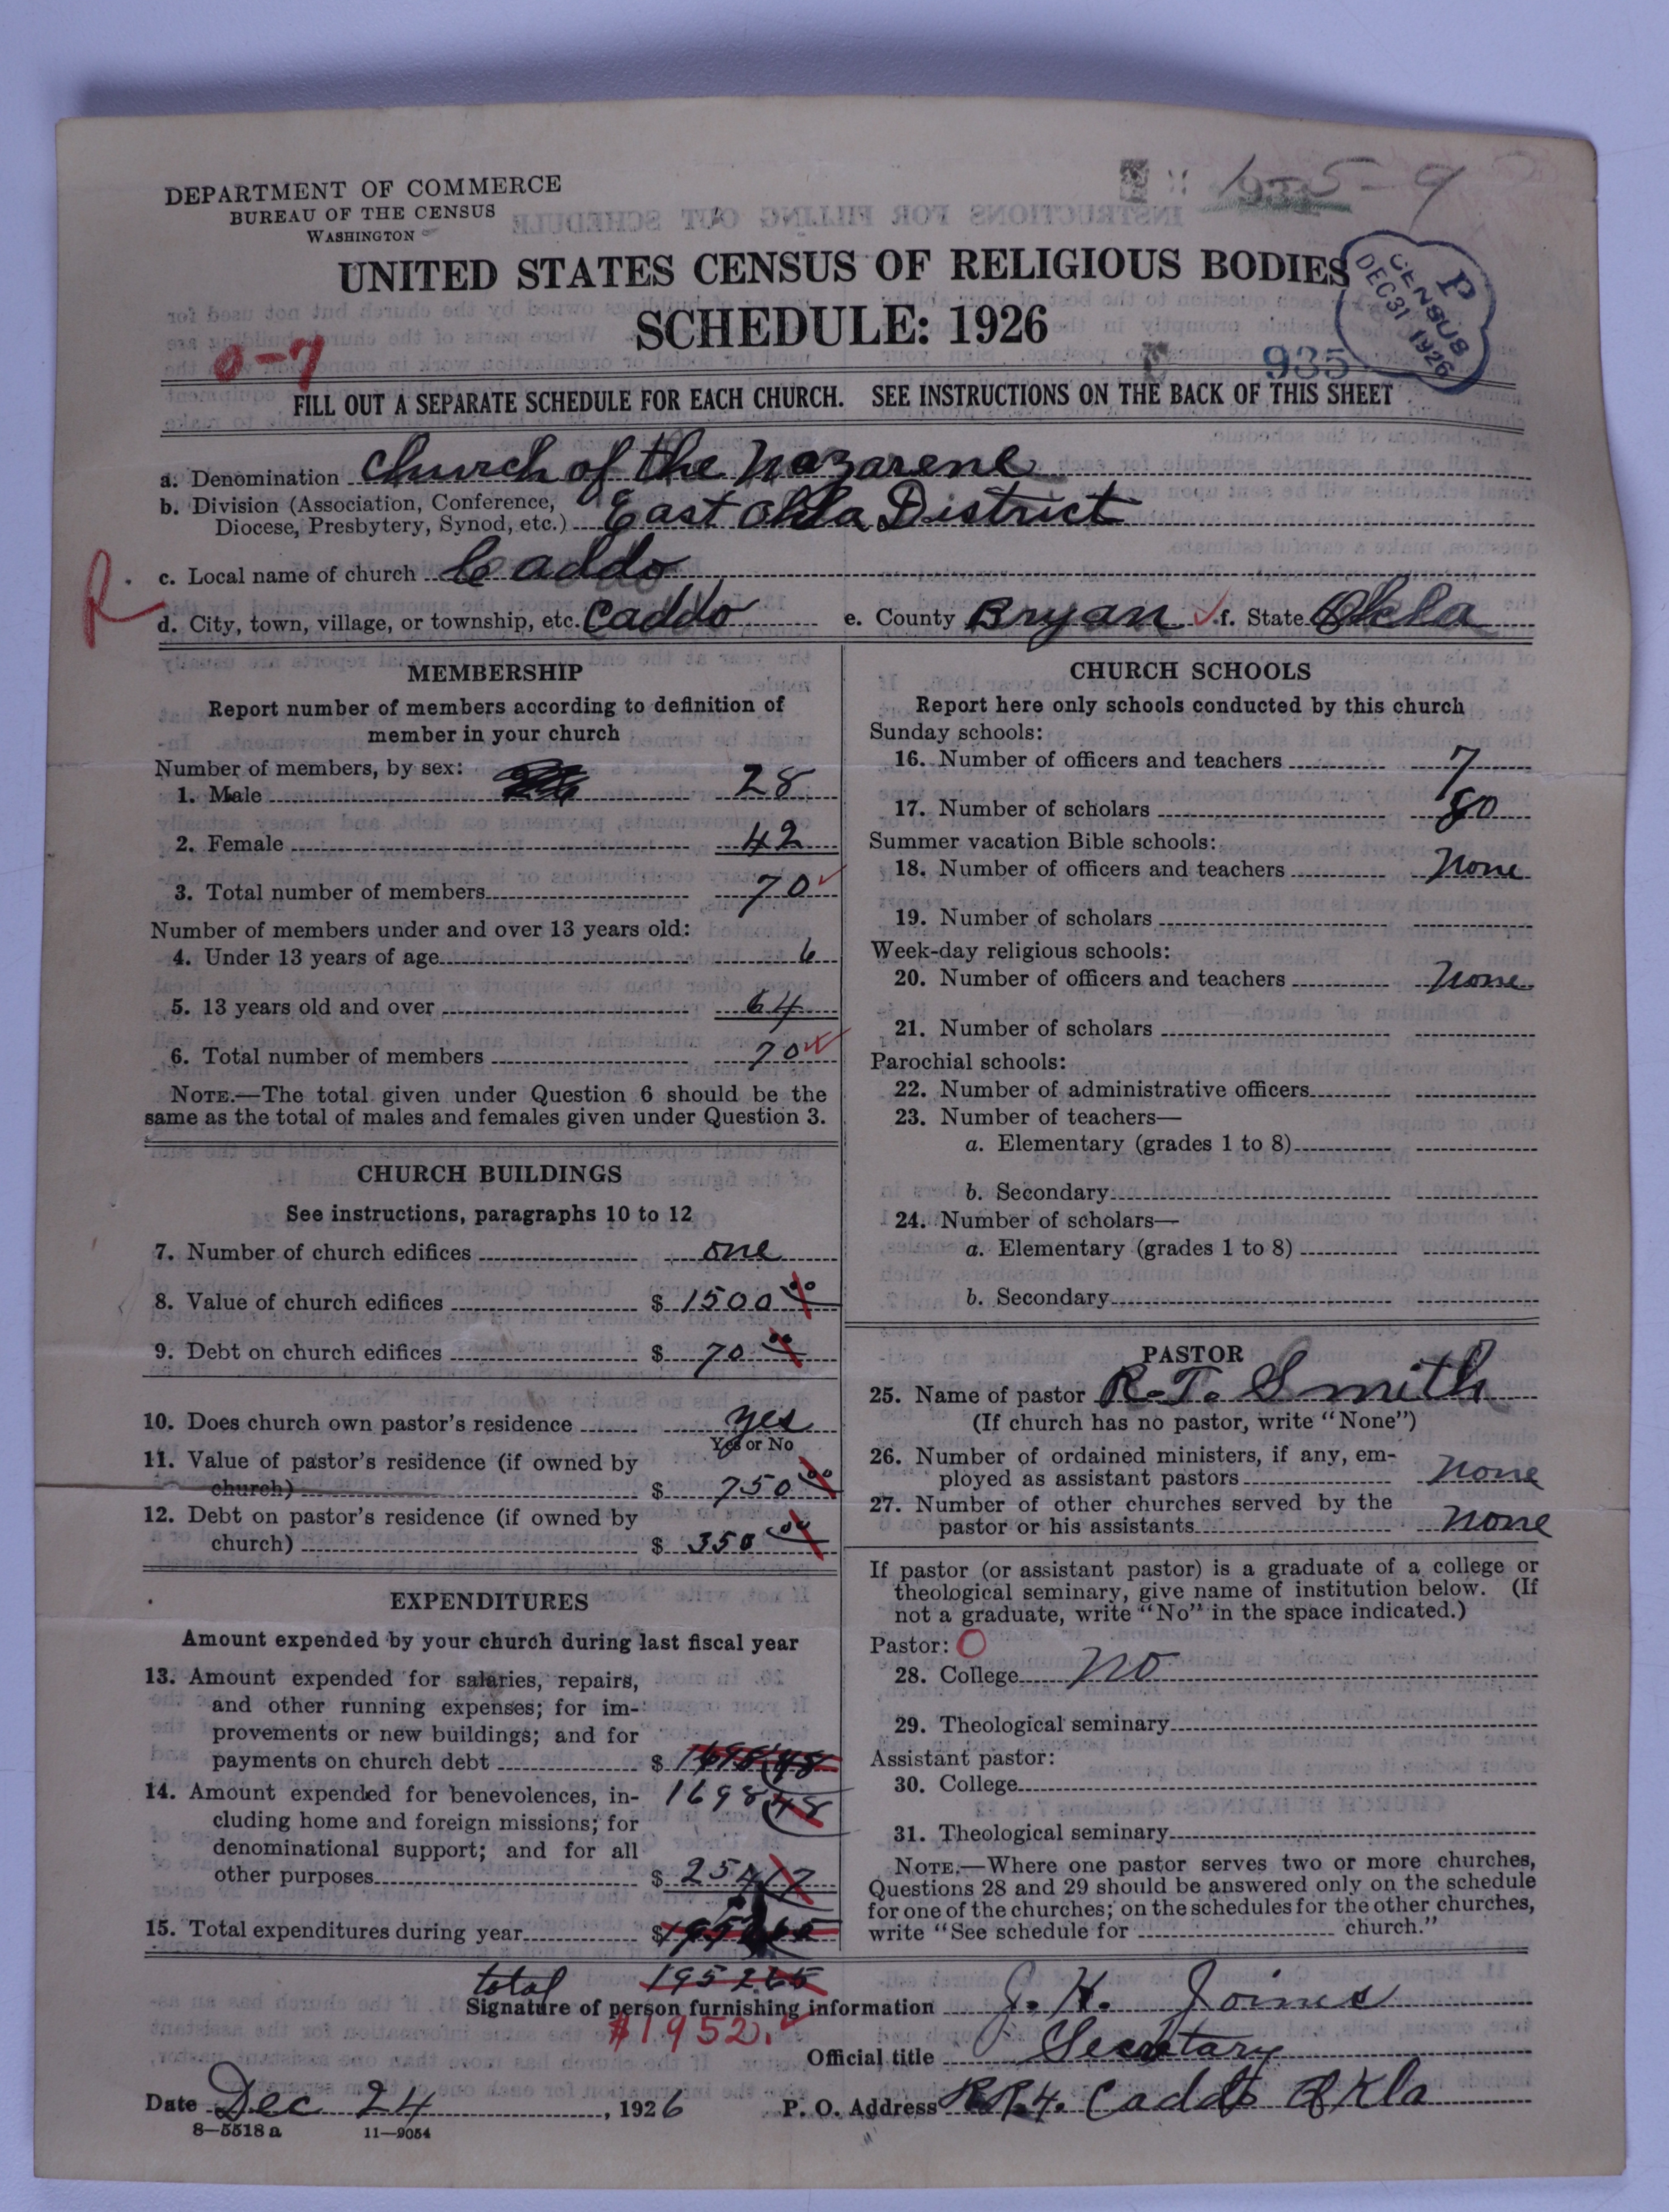 DEPARTMENT OF COMMERCE
BUREAU OF THE CENSUS
WASHINGTON
1-5-9
UNITED STATES CENSUS OF RELIGIOUS BODIES
SCHEDULE: 1926
P
CENSUS
DEC 31 1926
0-7
935
FILL OUT A SEPARATE SCHEDULE FOR EACH CHURCH. SEE INSTRUCTIONS ON THE BACK OF THIS SHEET
a. Denomination Church of the Nazarene
b. Division (Association, Conference,
Diocese, Presbytery, Synod, etc.) East Okla District
R
c. Local name of church Caddo
d. City, town, village, or township, etc. Caddo e. County Bryan f. State Okla
MEMBERSHIP
Report number of members according to definition of
member in your church
Number of members, by sex:
1. Male 28
2. Female 42
3. Total number of members 70
Number of members under and over 13 years old:
4. Under 13 years of age 6
5. 13 years old and over 64
6. Total number of members 70
NOTE.—The total given under Question 6 should be the
same as the total of males and females given under Question 3.
CHURCH BUILDINGS
See instructions, paragraphs 10 to 12
7. Number of church edifices one
8. Value of church edifices $ 1500 00
9. Debt on church edifices $ 70 00
10. Does church own pastor's residence yes
Yes or No
11. Value of pastor's residence (if owned by
church) $ 750 00
12. Debt on pastor's residence (if owned by
church) $ 350 00
EXPENDITURES
Amount expended by your church during last fiscal year
13. Amount expended for salaries, repairs,
and other running expenses; for im-
provements or new buildings; and for
payments on church debt $ 1698 48
14. Amount expended for benevolences, in- 1698 48
cluding home and foreign missions; for
denominational support; and for all
other purposes $ 254 17
15. Total expenditures during year $
total 1952.65
$1952.
CHURCH SCHOOLS
Report here only schools conducted by this church
Sunday schools:
16. Number of officers and teachers 7
17. Number of scholars 80
Summer vacation Bible schools:
18. Number of officers and teachers None
19. Number of scholars
Week-day religious schools:
20. Number of officers and teachers None
21. Number of scholars
Parochial schools:
22. Number of administrative officers
23. Number of teachers—
a. Elementary (grades 1 to 8)
b. Secondary
24. Number of scholars—
a. Elementary (grades 1 to 8)
b. Secondary
PASTOR
25. Name of pastor R. T. Smith
(If church has no pastor, write "None")
26. Number of ordained ministers, if any, em-
ployed as assistant pastors None
27. Number of other churches served by the
pastor or his assistants None
If pastor (or assistant pastor) is a graduate of a college or
theological seminary, give name of institution below. (If
not a graduate, write "No" in the space indicated.)
Pastor: O
28. College No
29. Theological seminary
Assistant pastor:
30. College
31. Theological seminary
NOTE.—Where one pastor serves two or more churches,
Questions 28 and 29 should be answered only on the schedule
for one of the churches; on the schedules for the other churches,
write "See schedule for church."
Signature of person furnishing information J. H. Joines
Official title Secretary
Date Dec 24, 1926 P. O. Address R.R.4. Caddo Okla
8—5518 a 11—9054